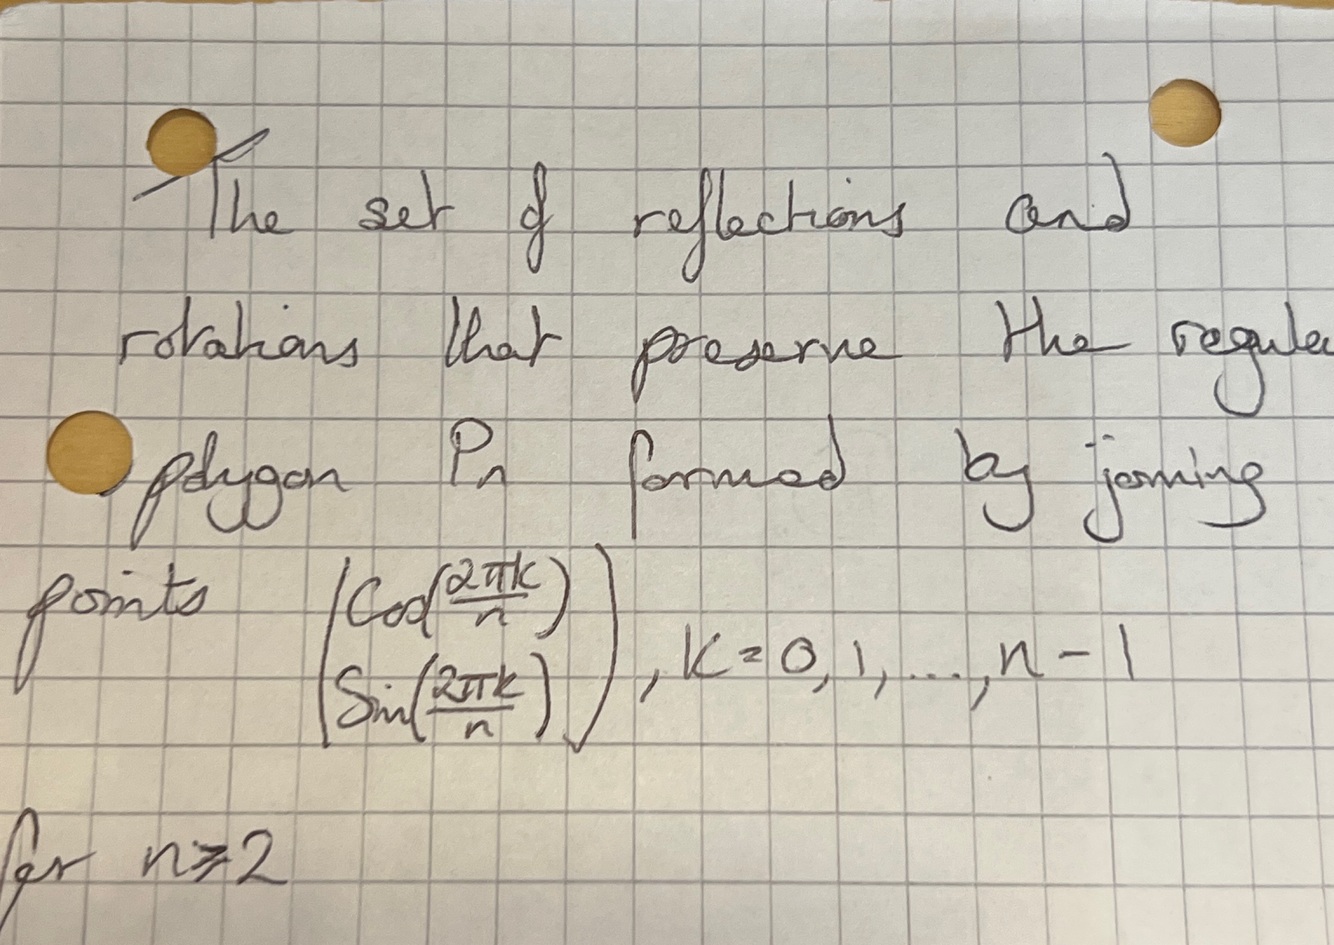 The set of reflections and
rotations that preserve the regula
polygon Pn formed by joining
points (Cos(2πk/n) Sin(2πk/n)), k = 0, 1, ..., n - 1
for n ≥ 2